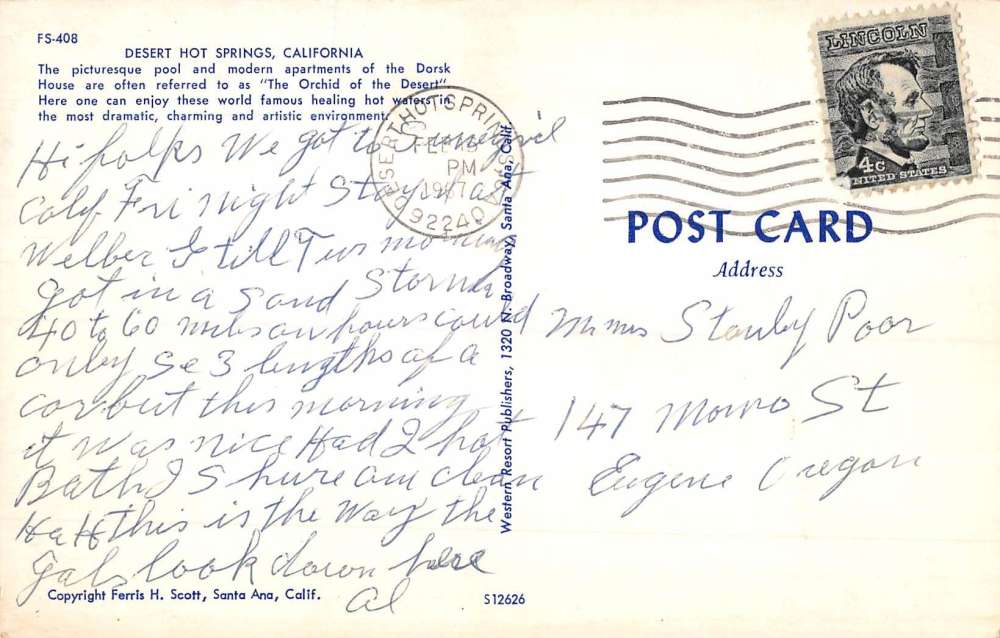 FS-408
DESERT HOT SPRINGS, CALIFORNIA
The picturesque pool and modern apartments of the Dorsk
House are often referred to as "The Orchid of the Desert".
Here one can enjoy these world famous healing hot waters in
the most dramatic, charming and artistic environment.
Hi folks We got to
Calif Fri night Stay at
Welber I till Tus morning
got in a Sand Storm
40 to 60 miles an hours could
onby Se 3 lengths of a
car but this morning
it was nice Had 2 hot
Bath I Shure am clean
Ha H this is the way the
gals look down here
al
Copyright Ferris H. Scott, Santa Ana, Calif.
S12626
Western Resort Publishers, 1320 N. Broadway, Santa Ana, Calif.
DESERT HOT SPRINGS
FEB
PM
1967
92240
LINCOLN
4c
UNITED STATES
POST CARD
Address
M mrs Stanley Poor
147 St
Eugene Oregon